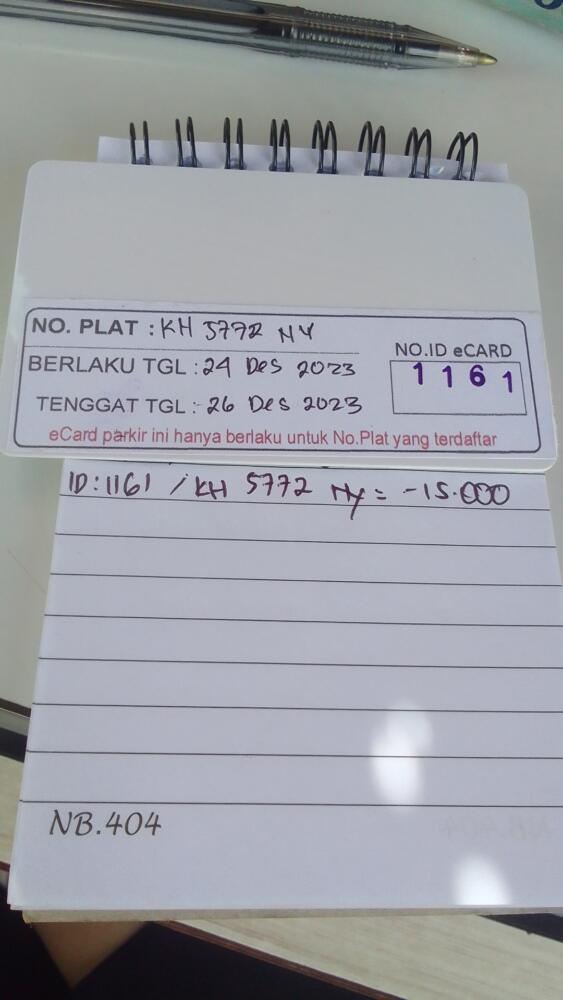 NO. PLAT : KH 5772 NY
BERLAKU TGL : 24 Des 2023
TENGGAT TGL : 26 Des 2023
NO.ID eCARD
1161
eCard parkir ini hanya berlaku untuk No.Plat yang terdaftar
ID : 1161 / KH 5772 Ny = -15.000
NB.404